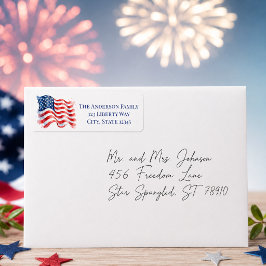 The Anderson Family
123 Liberty Way
City, State 12345
Mr. and Mrs Johnson
456 Freedom Lane
Star Spangled, ST 78910